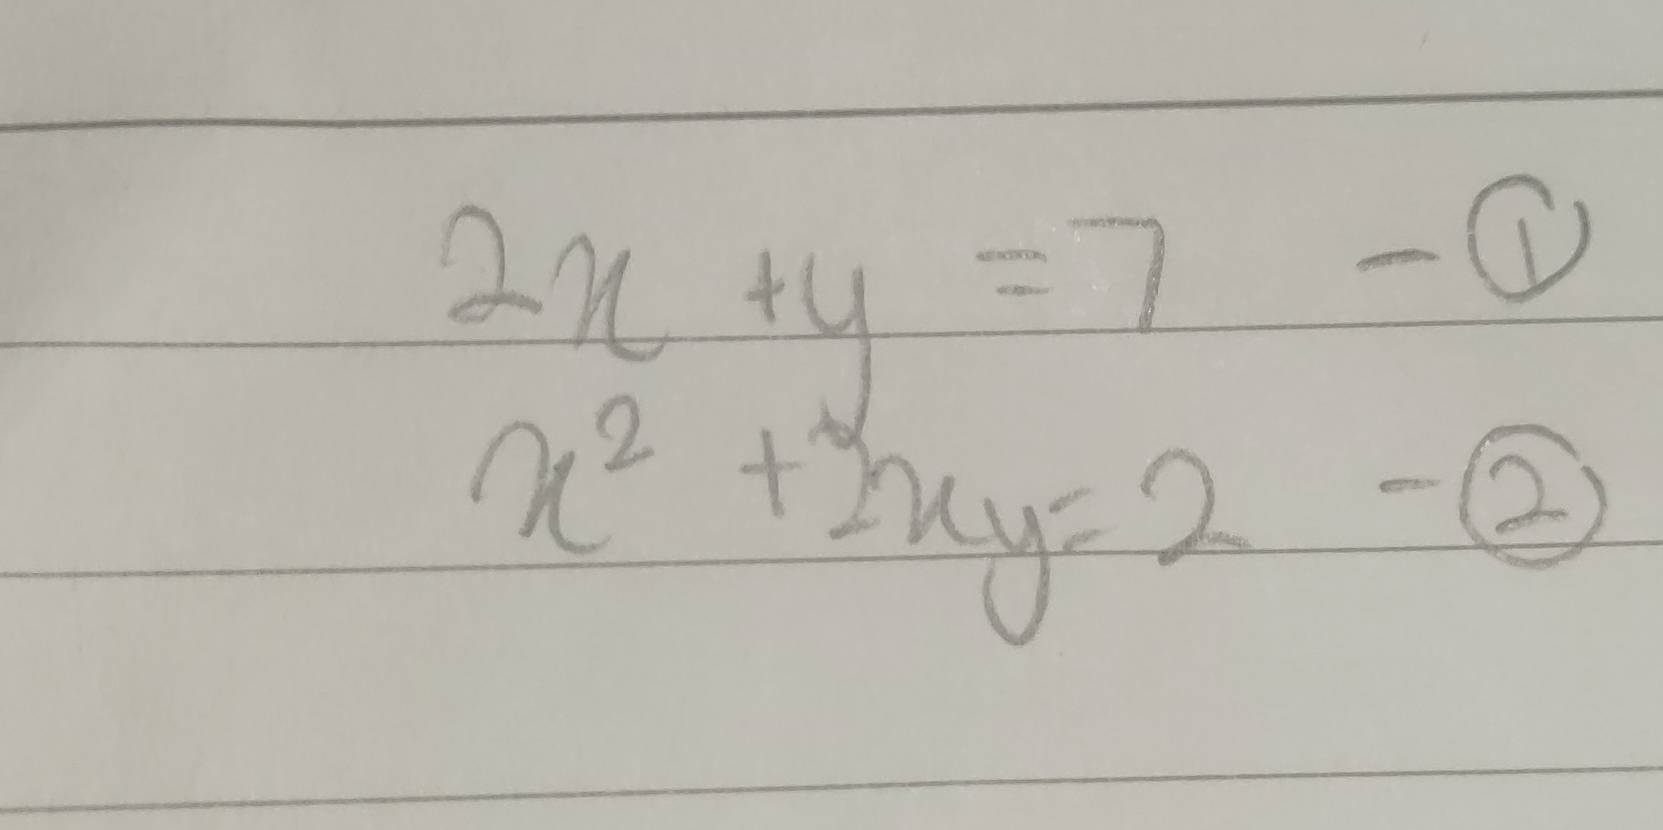 2x + y = 7 - ①
x² + 2xy = 2 - ②